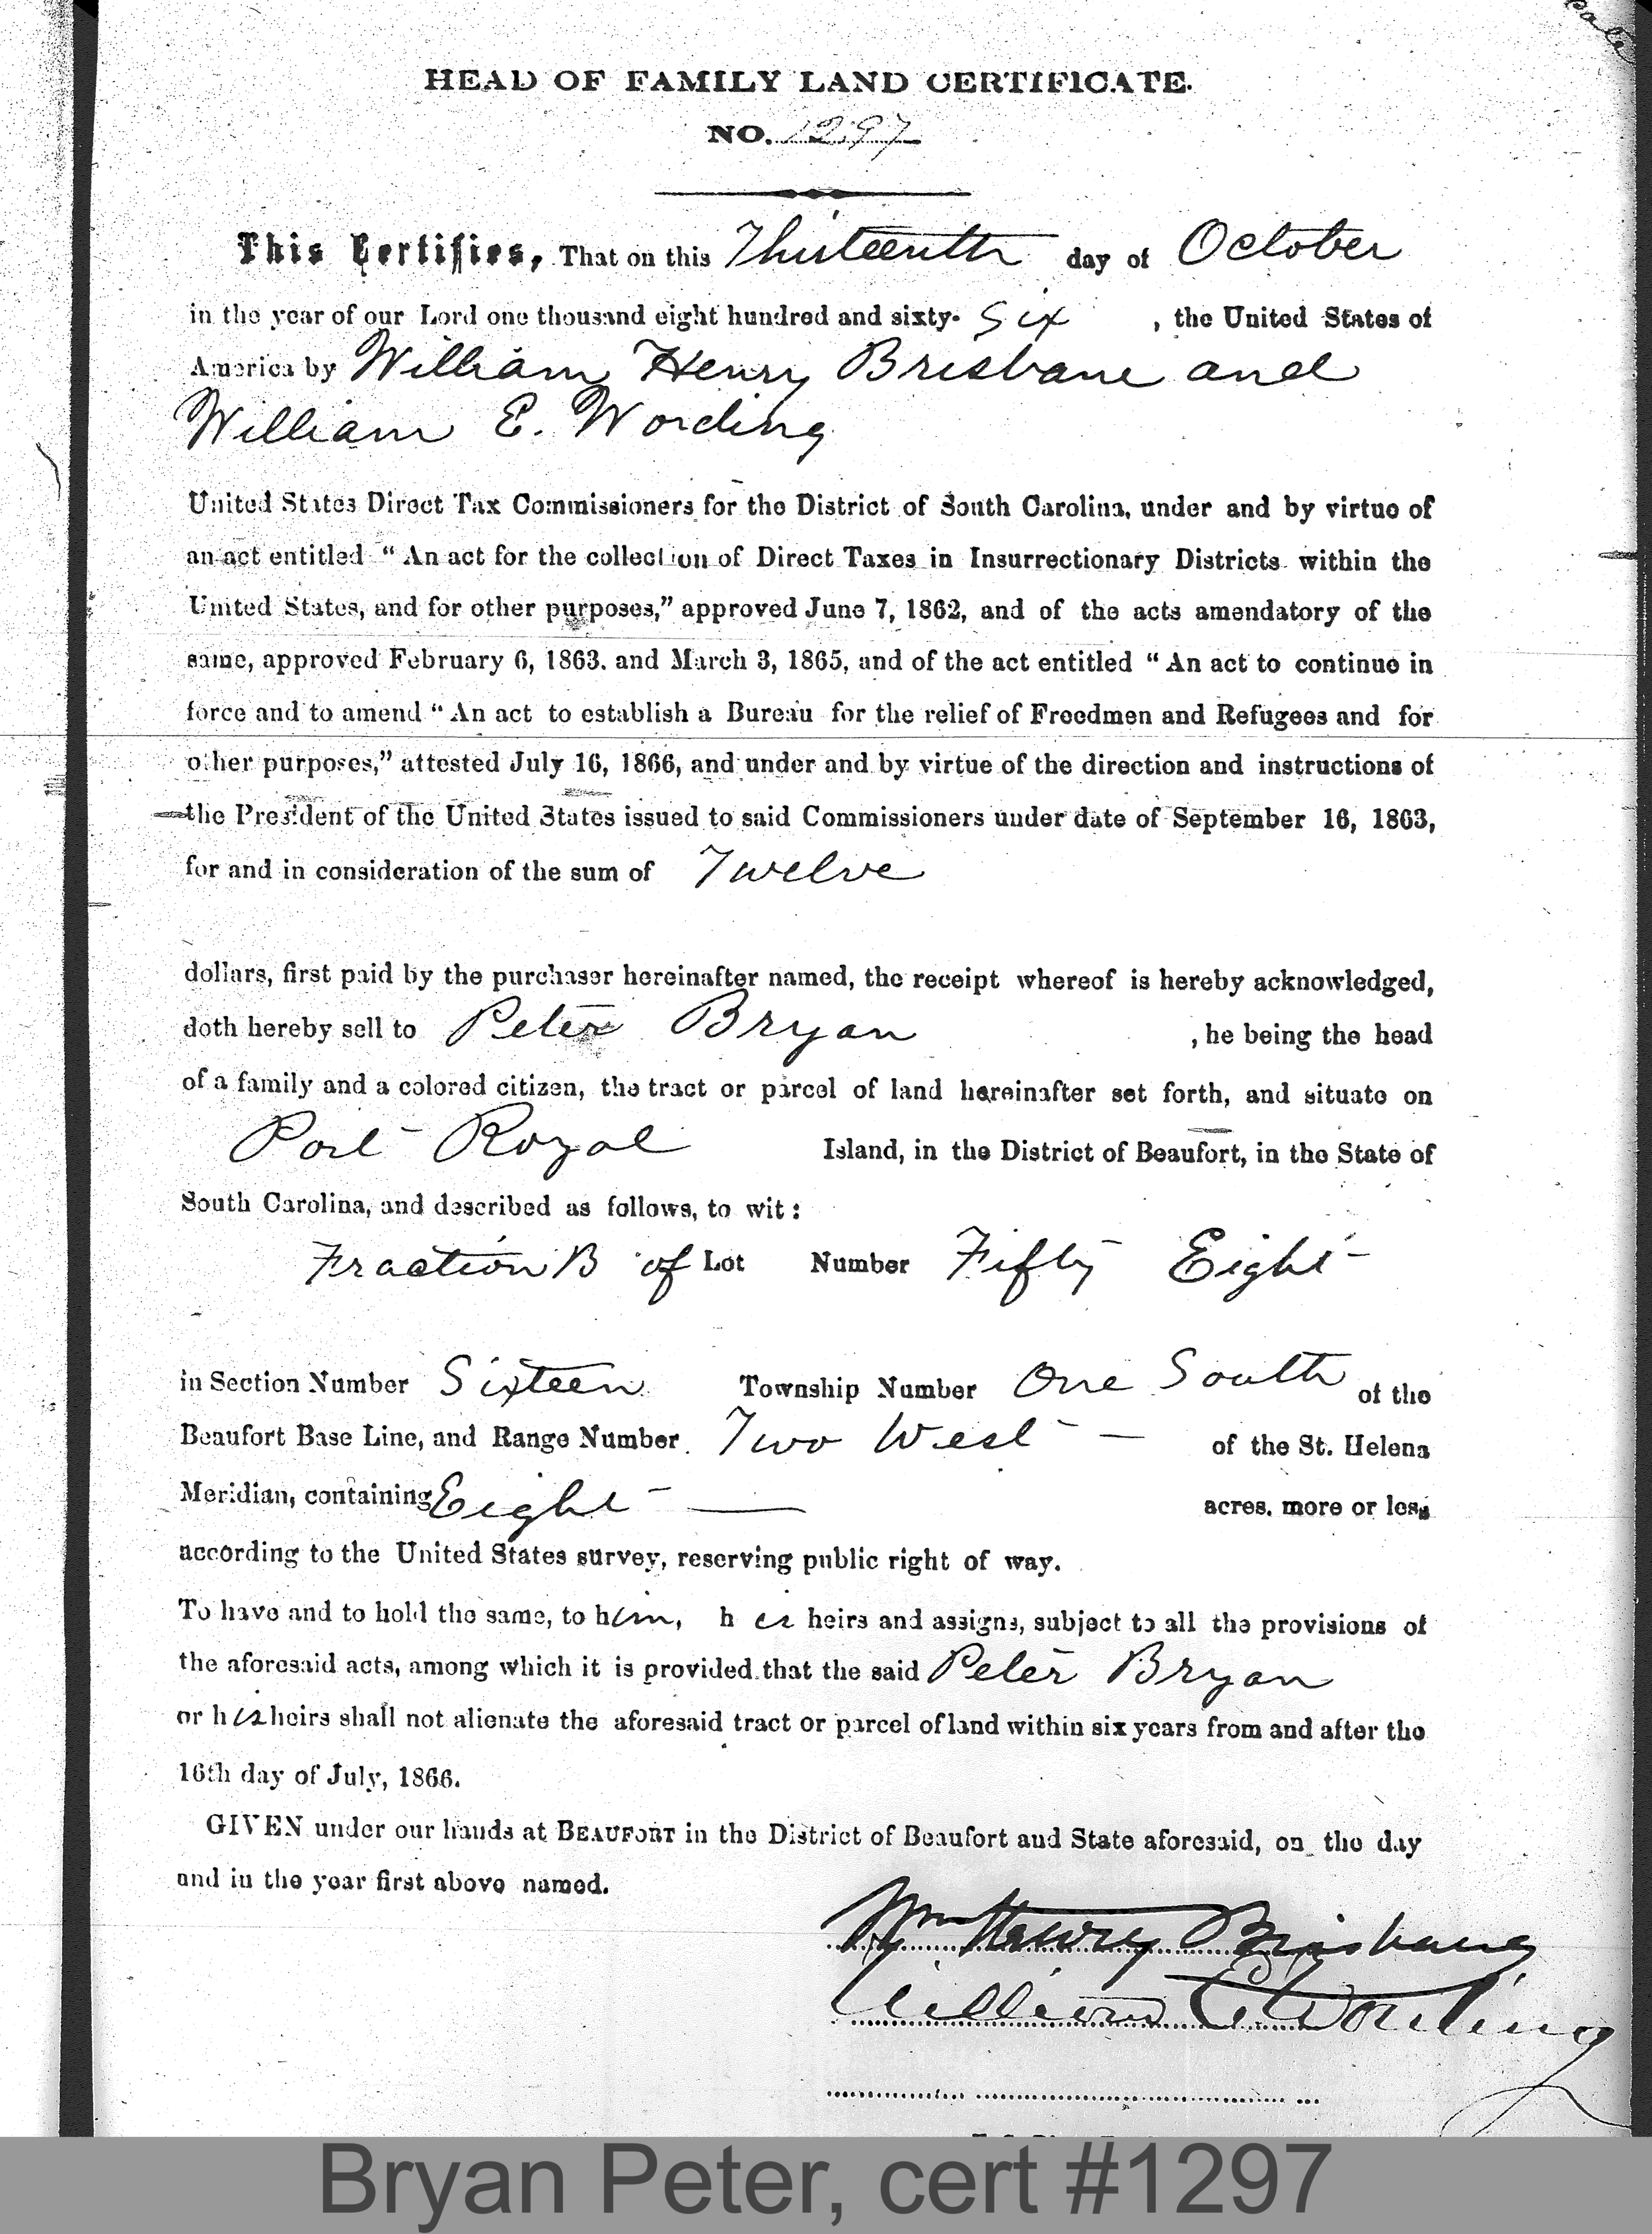 HEAD OF FAMILY LAND CERTIFICATE.
NO. 1297
This Certifies, That on this Thirteenth day of October
in the year of our Lord one thousand eight hundred and sixty- Six , the United States of
America by William Henry Brisbane and
William E. Wording
United States Direct Tax Commissioners for the District of South Carolina, under and by virtue of
an act entitled "An act for the collection of Direct Taxes in Insurrectionary Districts within the
United States, and for other purposes," approved June 7, 1862, and of the acts amendatory of the
same, approved February 6, 1863. and March 3, 1865, and of the act entitled "An act to continue in
force and to amend "An act to establish a Bureau for the relief of Freedmen and Refugees and for
other purposes," attested July 16, 1866, and under and by virtue of the direction and instructions of
the President of the United States issued to said Commissioners under date of September 16, 1863,
for and in consideration of the sum of Twelve
dollars, first paid by the purchaser hereinafter named, the receipt whereof is hereby acknowledged,
doth hereby sell to Peter Bryan , he being the head
of a family and a colored citizen, the tract or parcel of land hereinafter set forth, and situate on
Port Royal Island, in the District of Beaufort, in the State of
South Carolina, and described as follows, to wit:
Fraction B of Lot Number Fifty Eight
in Section Number Sixteen Township Number One South of the
Beaufort Base Line, and Range Number Two West — of the St. Helena
Meridian, containing Eight — acres. more or less
according to the United States survey, reserving public right of way.
To have and to hold the same, to him, his heirs and assigns, subject to all the provisions of
the aforesaid acts, among which it is provided that the said Peter Bryan
or his heirs shall not alienate the aforesaid tract or parcel of land within six years from and after the
16th day of July, 1866.
GIVEN under our hands at BEAUFORT in the District of Beaufort and State aforesaid, on the day
and in the year first above named.
Wm Henry Brisbane
William E. Wording
Bryan Peter, cert #1297